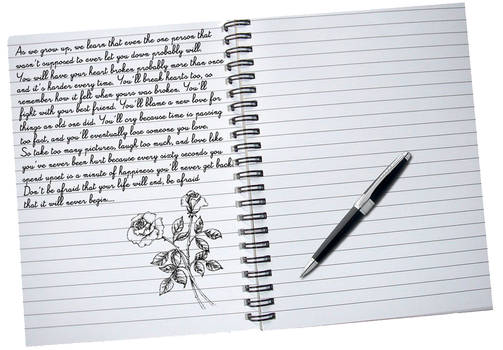 As we grow up, we learn that even the one person that
wasn't supposed to ever let you down probably will.
You will have your heart broken probably more than once
and it's harder every time. You'll break hearts too, so
remember how it felt when yours was broken. You'll
fight with your best friend. You'll blame a new love for
things an old one did. You'll cry because time is passing
too fast, and you'll eventually lose someone you love.
So take too many pictures, laugh too much, and love like
you've never been hurt because every sixty seconds you
spend upset is a minute of happiness you'll never get back.
Don't be afraid that your life will end, be afraid
that it will never begin...